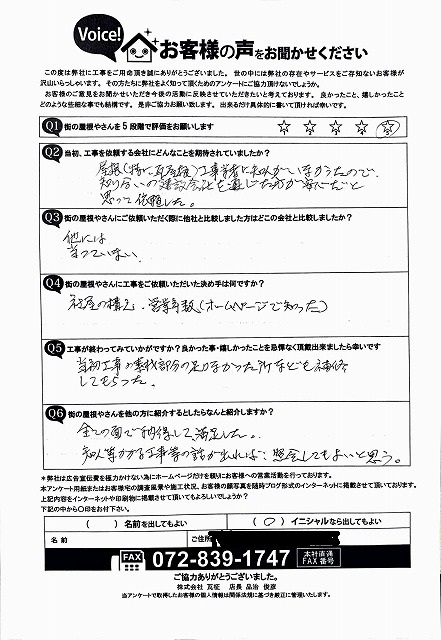 Voice!
お客様の声をお聞かせください
この度は弊社に工事をご用命頂き誠にありがとうございました。 世の中には弊社の存在やサービスをご存知ないお客様が
沢山いらっしゃいます。その方たちに弊社をよく知って頂くためのアンケートにご協力頂けないでしょうか。
お客様のご意見をお聞かせいただき今後の活動に反映させていただきたいと考えております。 良かったこと、嬉しかったこと
どのような些細な事でも結構です。 是非ご協力お願い致します。 出来るだけ具体的に書いて頂ければ幸いです。
Q1 街の屋根やさんを5段階で評価をお願いします
Q2 当初、工事を依頼する会社にどんなことを期待されていましたか?
知り合いの建設会社を通じた方が
思って依頼した。
Q3 街の屋根やさんにご依頼いただく際に他社と比較しました方はどこの会社と比較しましたか?
他には
当っていない
Q4 街の屋根やさんに工事をご依頼いただいた決め手は何ですか?
社屋の構え、営業年数(ホームページで知った)
Q5 工事が終わってみていかがですか?良かった事・嬉しかったことを忌憚なく頂戴出来ましたら幸いです
当初工事の
なかった所なども補修
してもらった。
Q6 街の屋根やさんを他の方に紹介するとしたらなんと紹介しますか?
全ての面で納得して満足した。
工事等の話が出れば、照会してもよいと思う。
*弊社は広告宣伝費を極力かけない為にホームページだけを頼りにお客様への営業活動を行っております。
本アンケート用紙またはお客様宅の調査風景や施工状況、お客様の顔写真を随時ブログ形式のインターネットに掲載させて頂いております。
上記内容をインターネットや印刷物に掲載させて頂いてもよろしいでしょうか?
下記の中から〇印をお付下さい。
( ) 名前を出してもよい ( 〇 ) イニシャルなら出してもよい
名前 ご住所
FAX 072-839-1747 本社直通 FAX番号
ご協力ありがとうございました。
株式会社 瓦柾 店長 品治 俊彦
当アンケートで取得したお客様の個人情報は関係法規に基づき厳正に管理いたします。